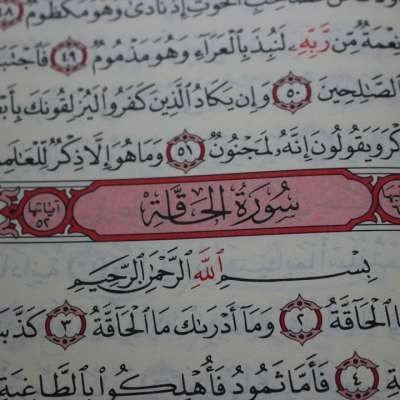 صَاحِبِ الْحُوتِ إِذْ نَادَىٰ وَهُوَ مَكْظُومٌ ٤٨
نِعْمَةٌ مِّن رَّبِّهِ لَنُبِذَ بِالْعَرَاءِ وَهُوَ مَذْمُومٌ ٤٩
الصَّالِحِينَ ٥٠ وَإِن يَكَادُ الَّذِينَ كَفَرُوا لَيُزْلِقُونَكَ
وَيَقُولُونَ إِنَّهُ لَمَجْنُونٌ ٥١ وَمَا هُوَ إِلَّا ذِكْرٌ
سُورَةُ الْحَاقَّةِ آيَاتُهَا ٥٢
بِسْمِ اللَّهِ الرَّحْمَٰنِ الرَّحِيمِ
الْحَاقَّةُ ٢ وَمَا أَدْرَىٰكَ مَا الْحَاقَّةُ ٣
٤ فَأَمَّا ثَمُودُ فَأُهْلِكُوا بِالطَّاغِيَةِ